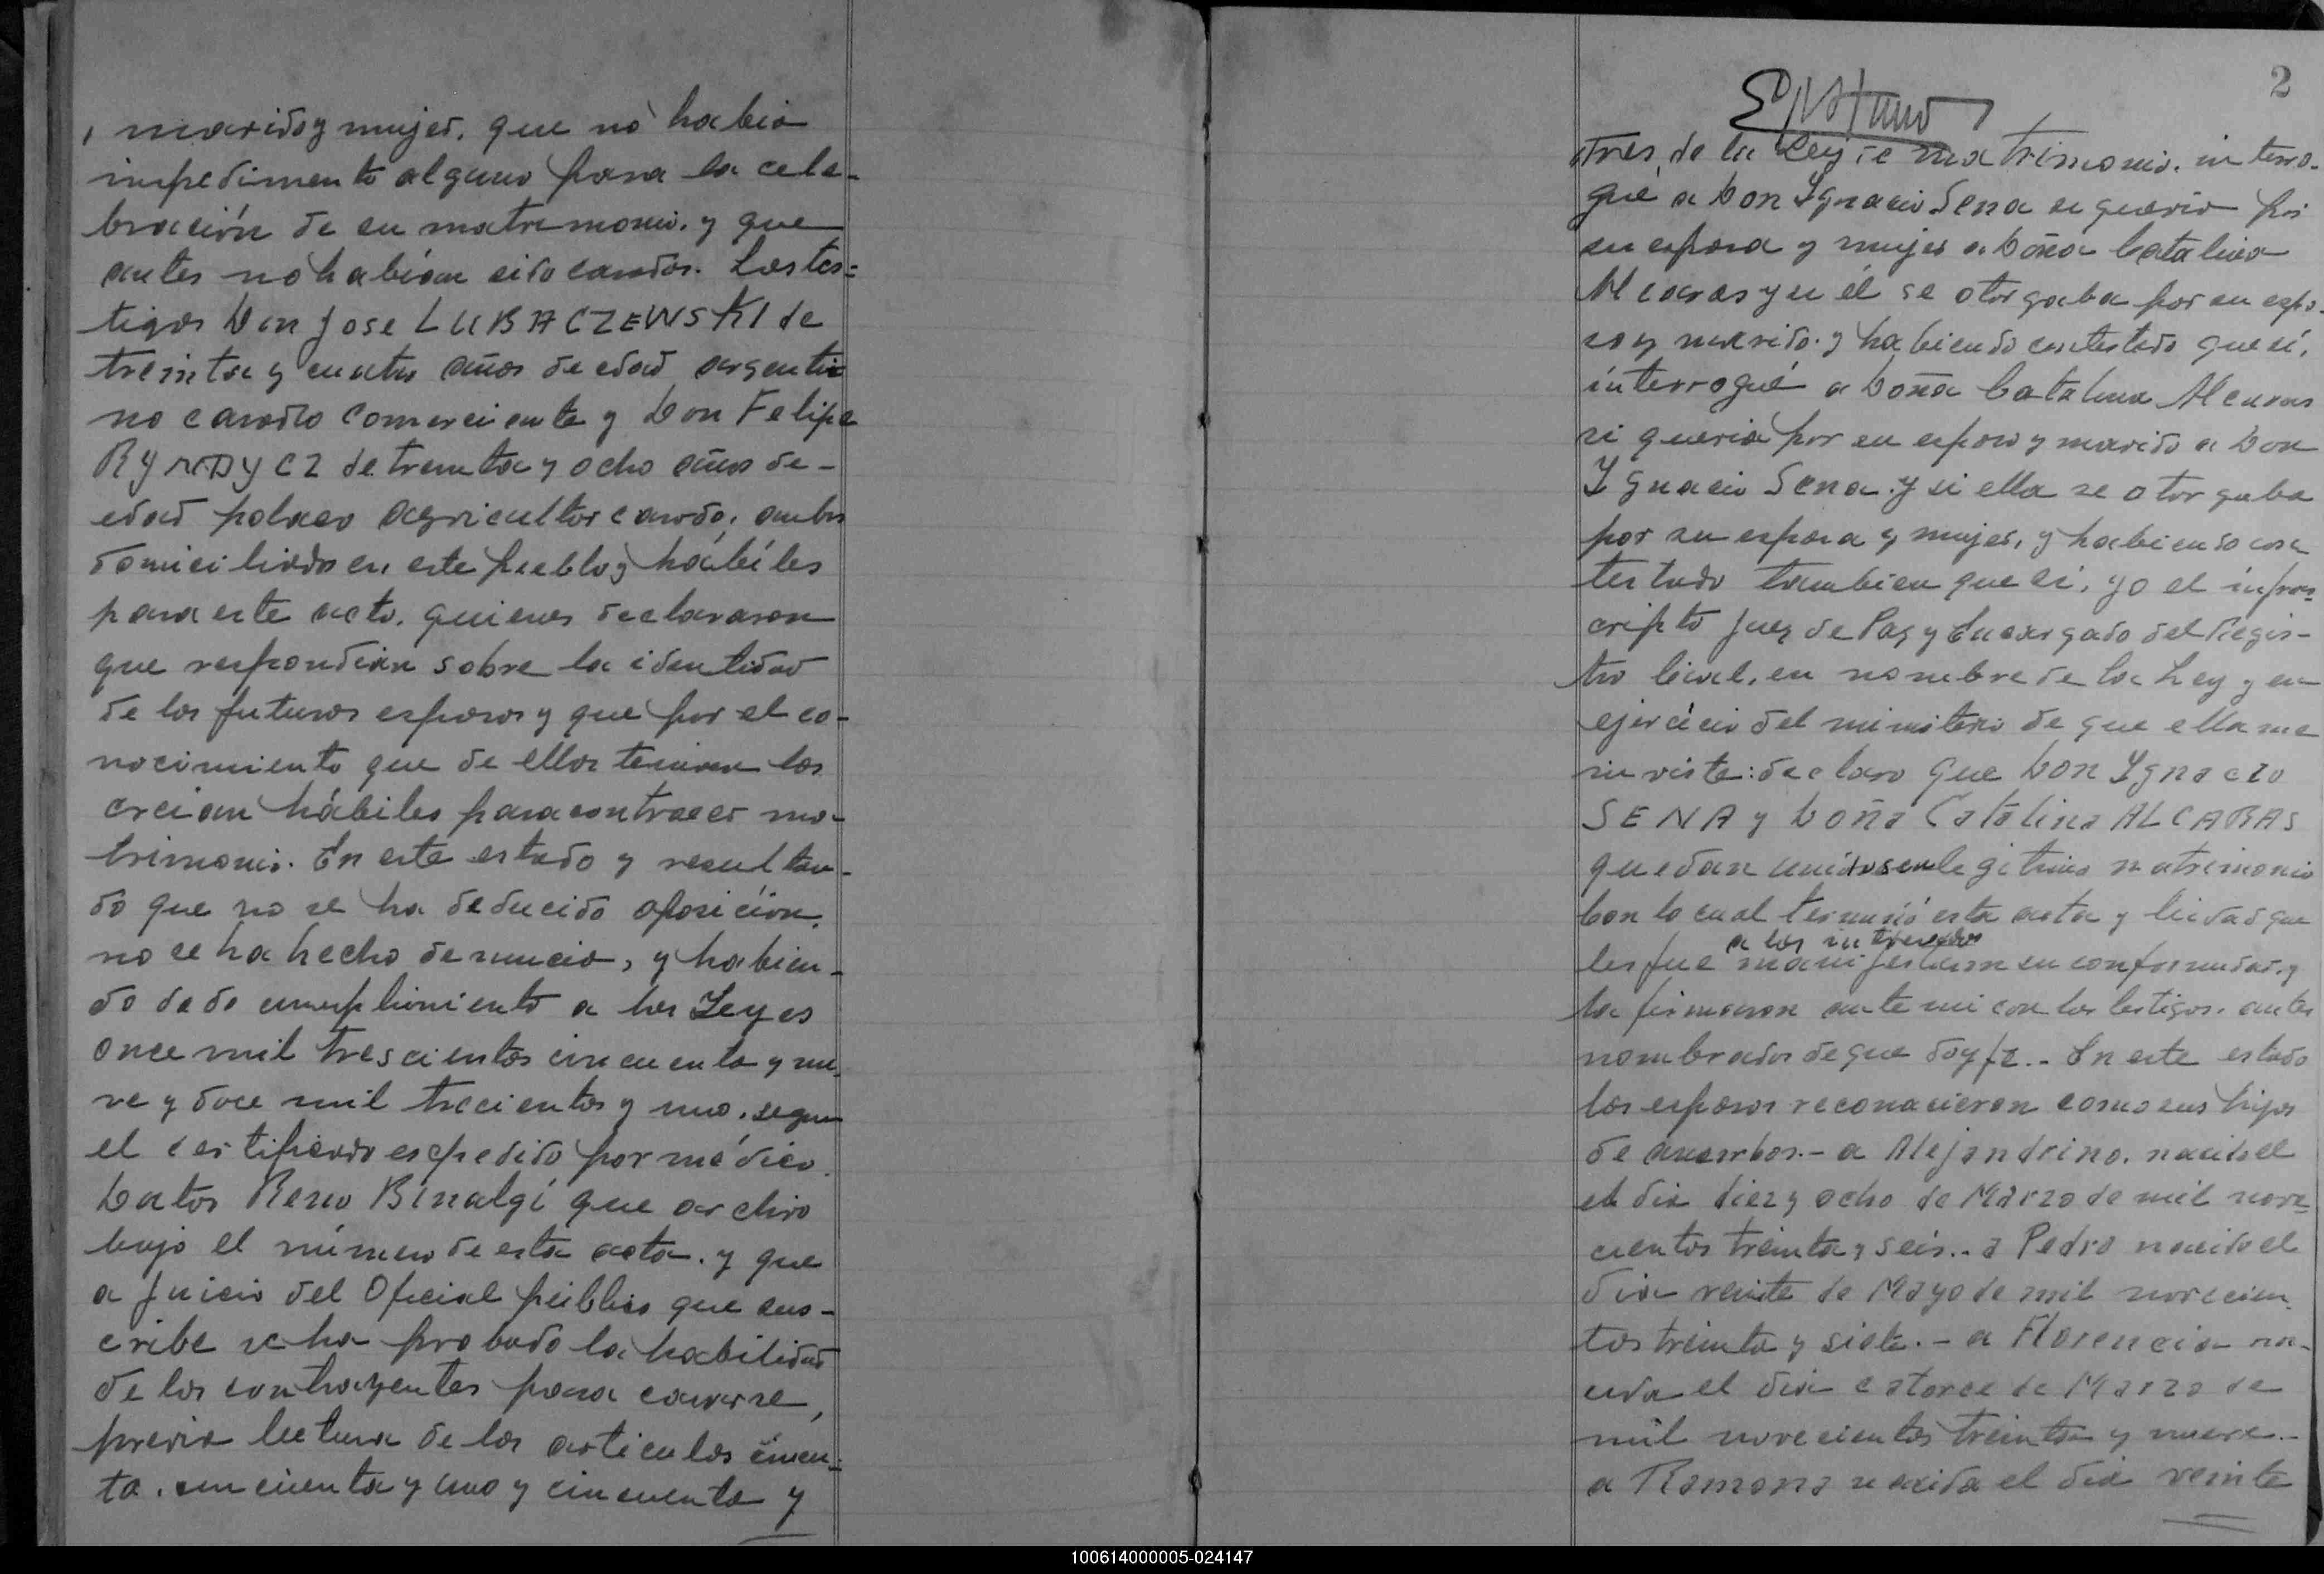 marido y mujer, que no había
impedimento alguno para la cele-
bración de su matrimonio. y que
antes no habían sido casados. Los tes-
tigos Don Jose LUBACZEWSKI de
treinta y cuatro años de edad argenti
no casado comerciante y Don Felipe
de treinta y ocho años de-
edad polaco agricultor casado, ambos
domiciliados en este pueblo y hábiles
para este acto. quienes declararon
que respondían sobre la identidad
de los futuros esposos y que por el co-
nocimiento que de ellos tenían los
creían hábiles para contraer ma-
trimonio. En este estado y resultan-
do que no se ha deducido oposición,
no se ha hecho denuncia, y habien-
do dado cumplimiento a las Leyes
once mil trescientos cincuenta y nue
ve y doce mil trecientos y uno. segun
el certificado espedido por médico
Reno Binalgi que archivo
bajo el número de esta acta. y que
a juicio del Oficial público que sus-
cribe se ha probado la habilidad
de los contrayentes para casarse,
previa lectura de los articulos cincuen-
ta. cincuenta y uno y cincuenta y
2
tres de la Ley de matrimonio. interro-
gué a Don Ygnacio Sena si quería por
su esposa y mujer a Doña Catalina
Alcaras y si él se otorgaba por su espo-
so y marido. y habiendo contestado que sí,
interrogué a Doña Catalina Alcaras
si queria por su esposo y marido a Don
Ygnacio Sena. y si ella se otorgaba
por su esposa y mujer, y habiendo con
testado tambien que si, yo el infras-
cripto Juez de Paz y Encargado del Regis-
tro Civil, en nombre de la Ley y en
ejercicio del ministerio de que ella me
inviste: declaro que Don Ygnacio
SENA y Doña Catalina ALCARAS
quedan unidos en legitimo matrimonio
Con lo cual terminó esta acta y leida que
a los interesados
les fue manifestaron su conformidad. y
la firmaron ante mi con los testigos. antes
nombrados de que doy fe.. En este estado
los esposos reconocieron como sus hijos
de ambos.- a Alejandrino. nacido el
el dia diez y ocho de Marzo de mil nove-
cientos treinta y seis.. a Pedro nacido el
dia veinte de Mayo de mil novecien
tos treinta y siete.- a Florencia na-
cida el dia catorce de Marzo de
mil novecientos treinta y nueve.-
a Ramona nacida el dia veinte
100614000005-024147